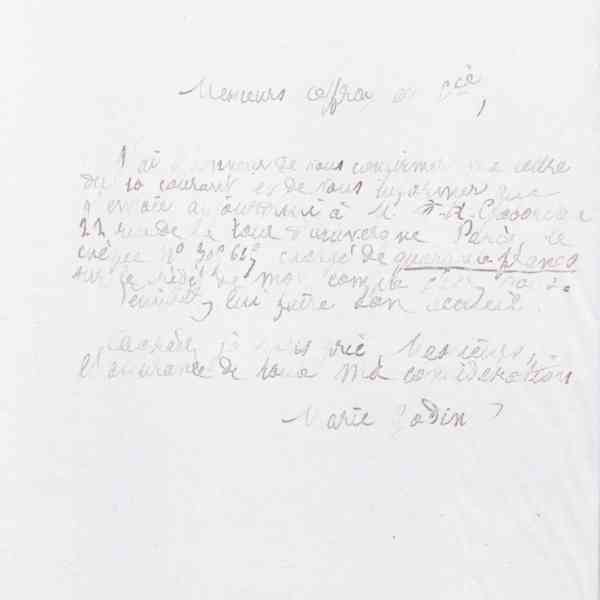 Messieurs Coffroy et Cie,
J'ai l'honneur de vous confirmer ma lettre
du 10 courant et de vous informer que
j'envoie aujourd'hui à M.
22 rue de la Tour d'Auvergne Paris le
chèque N° chargé de quarante francs
sur le crédit de mon compte chez vous.
Veuillez lui faire bon accueil.
Agréez, je vous prie, Messieurs,
l'assurance de toute ma considération
Marie Godin